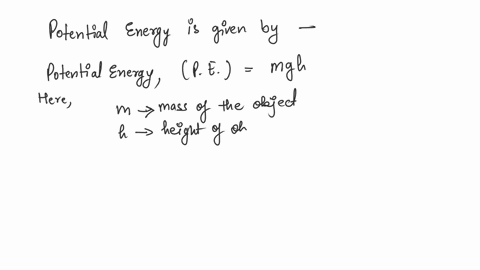 Potential Energy is given by —
Potential Energy, (P.E.) = mgh
Here,
m → mass of the object
h → height of ob